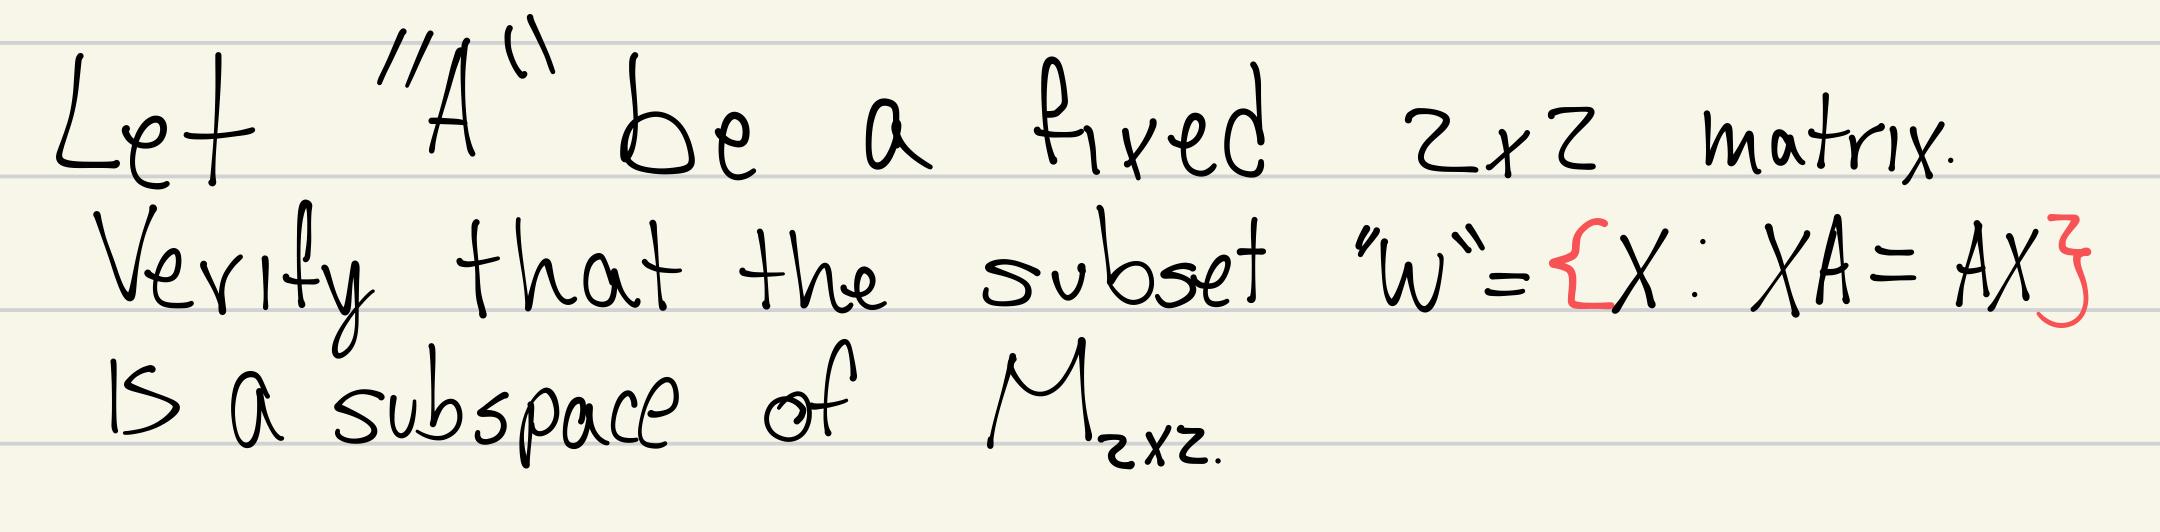 Let "A" be a fixed 2x2 matrix.
Verify that the subset "W"={X: XA=AX}
is a subspace of M₂ₓ₂.